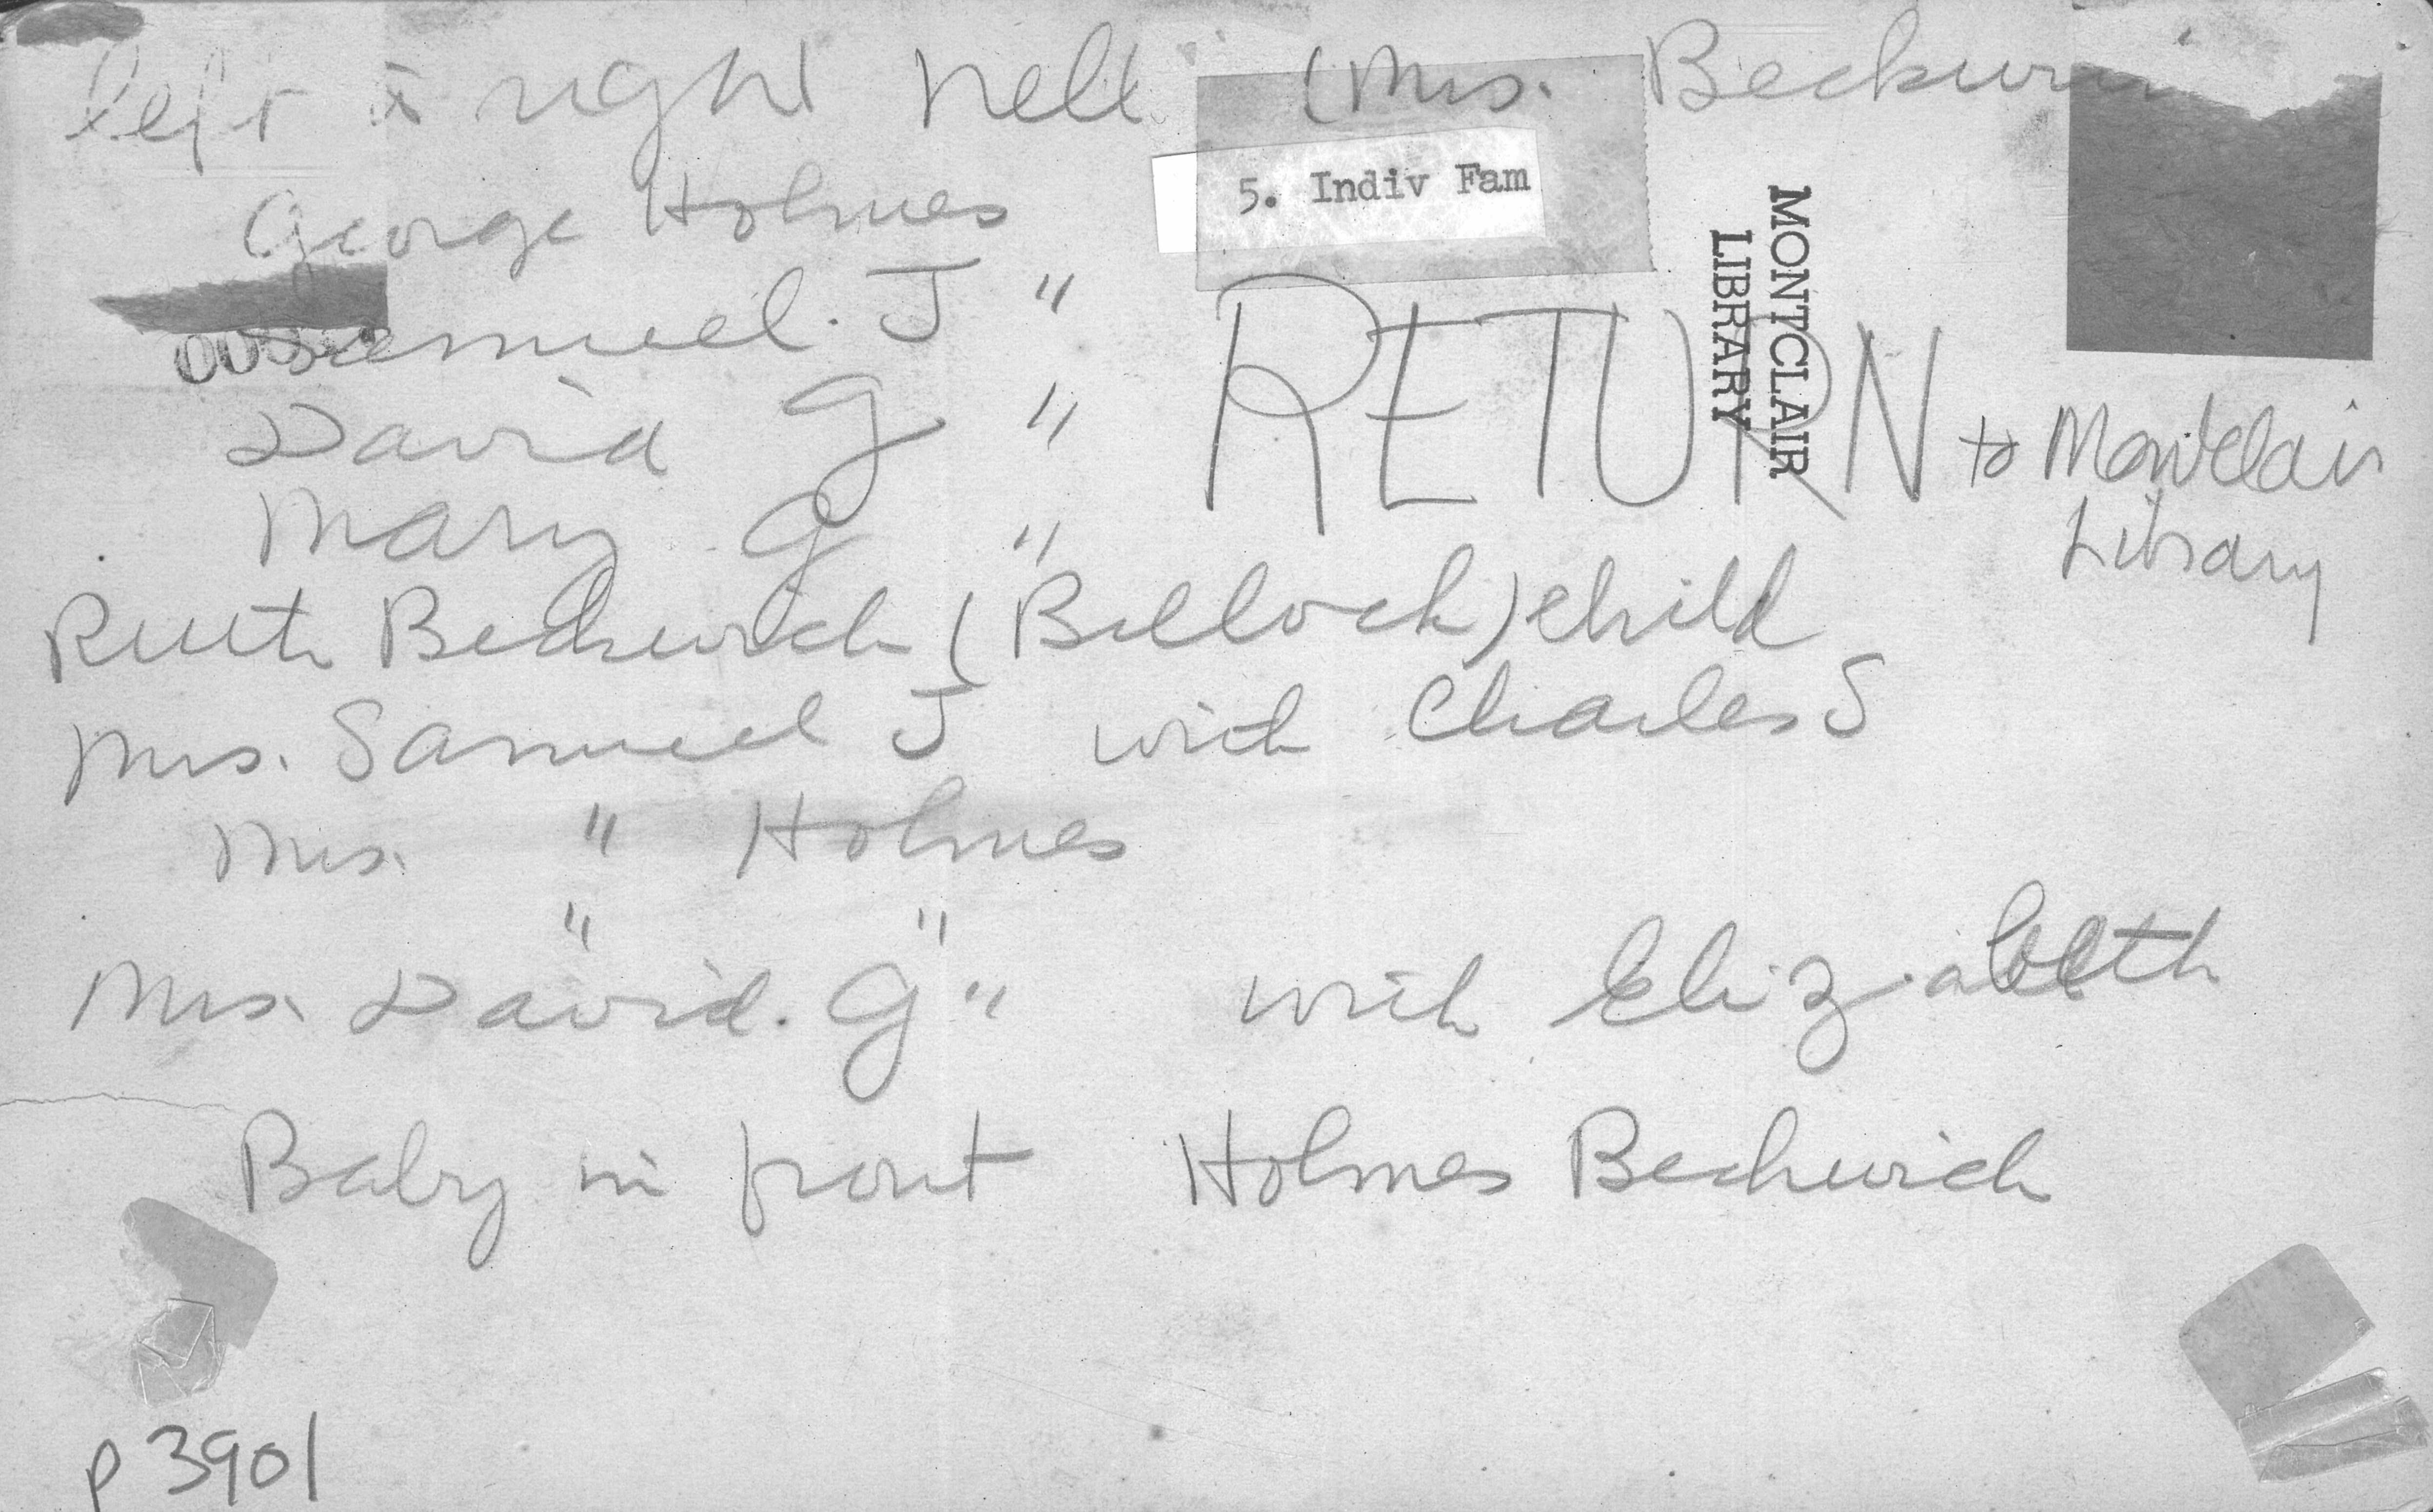 left to right Nell (Mrs. Beckwi
5. Indiv Fam
George Holmes
Samuel. J "
David G "
Mary G "
MONTCLAIR
LIBRARY
RETURN to Montclair
Library
Ruth Beckwith (Bullock) child
Mrs. Samuel J with Charles S
Mrs. " Holmes
" "
Mrs. David. G " with Elizabeth
Baby in front Holmes Beckwith
p 3901